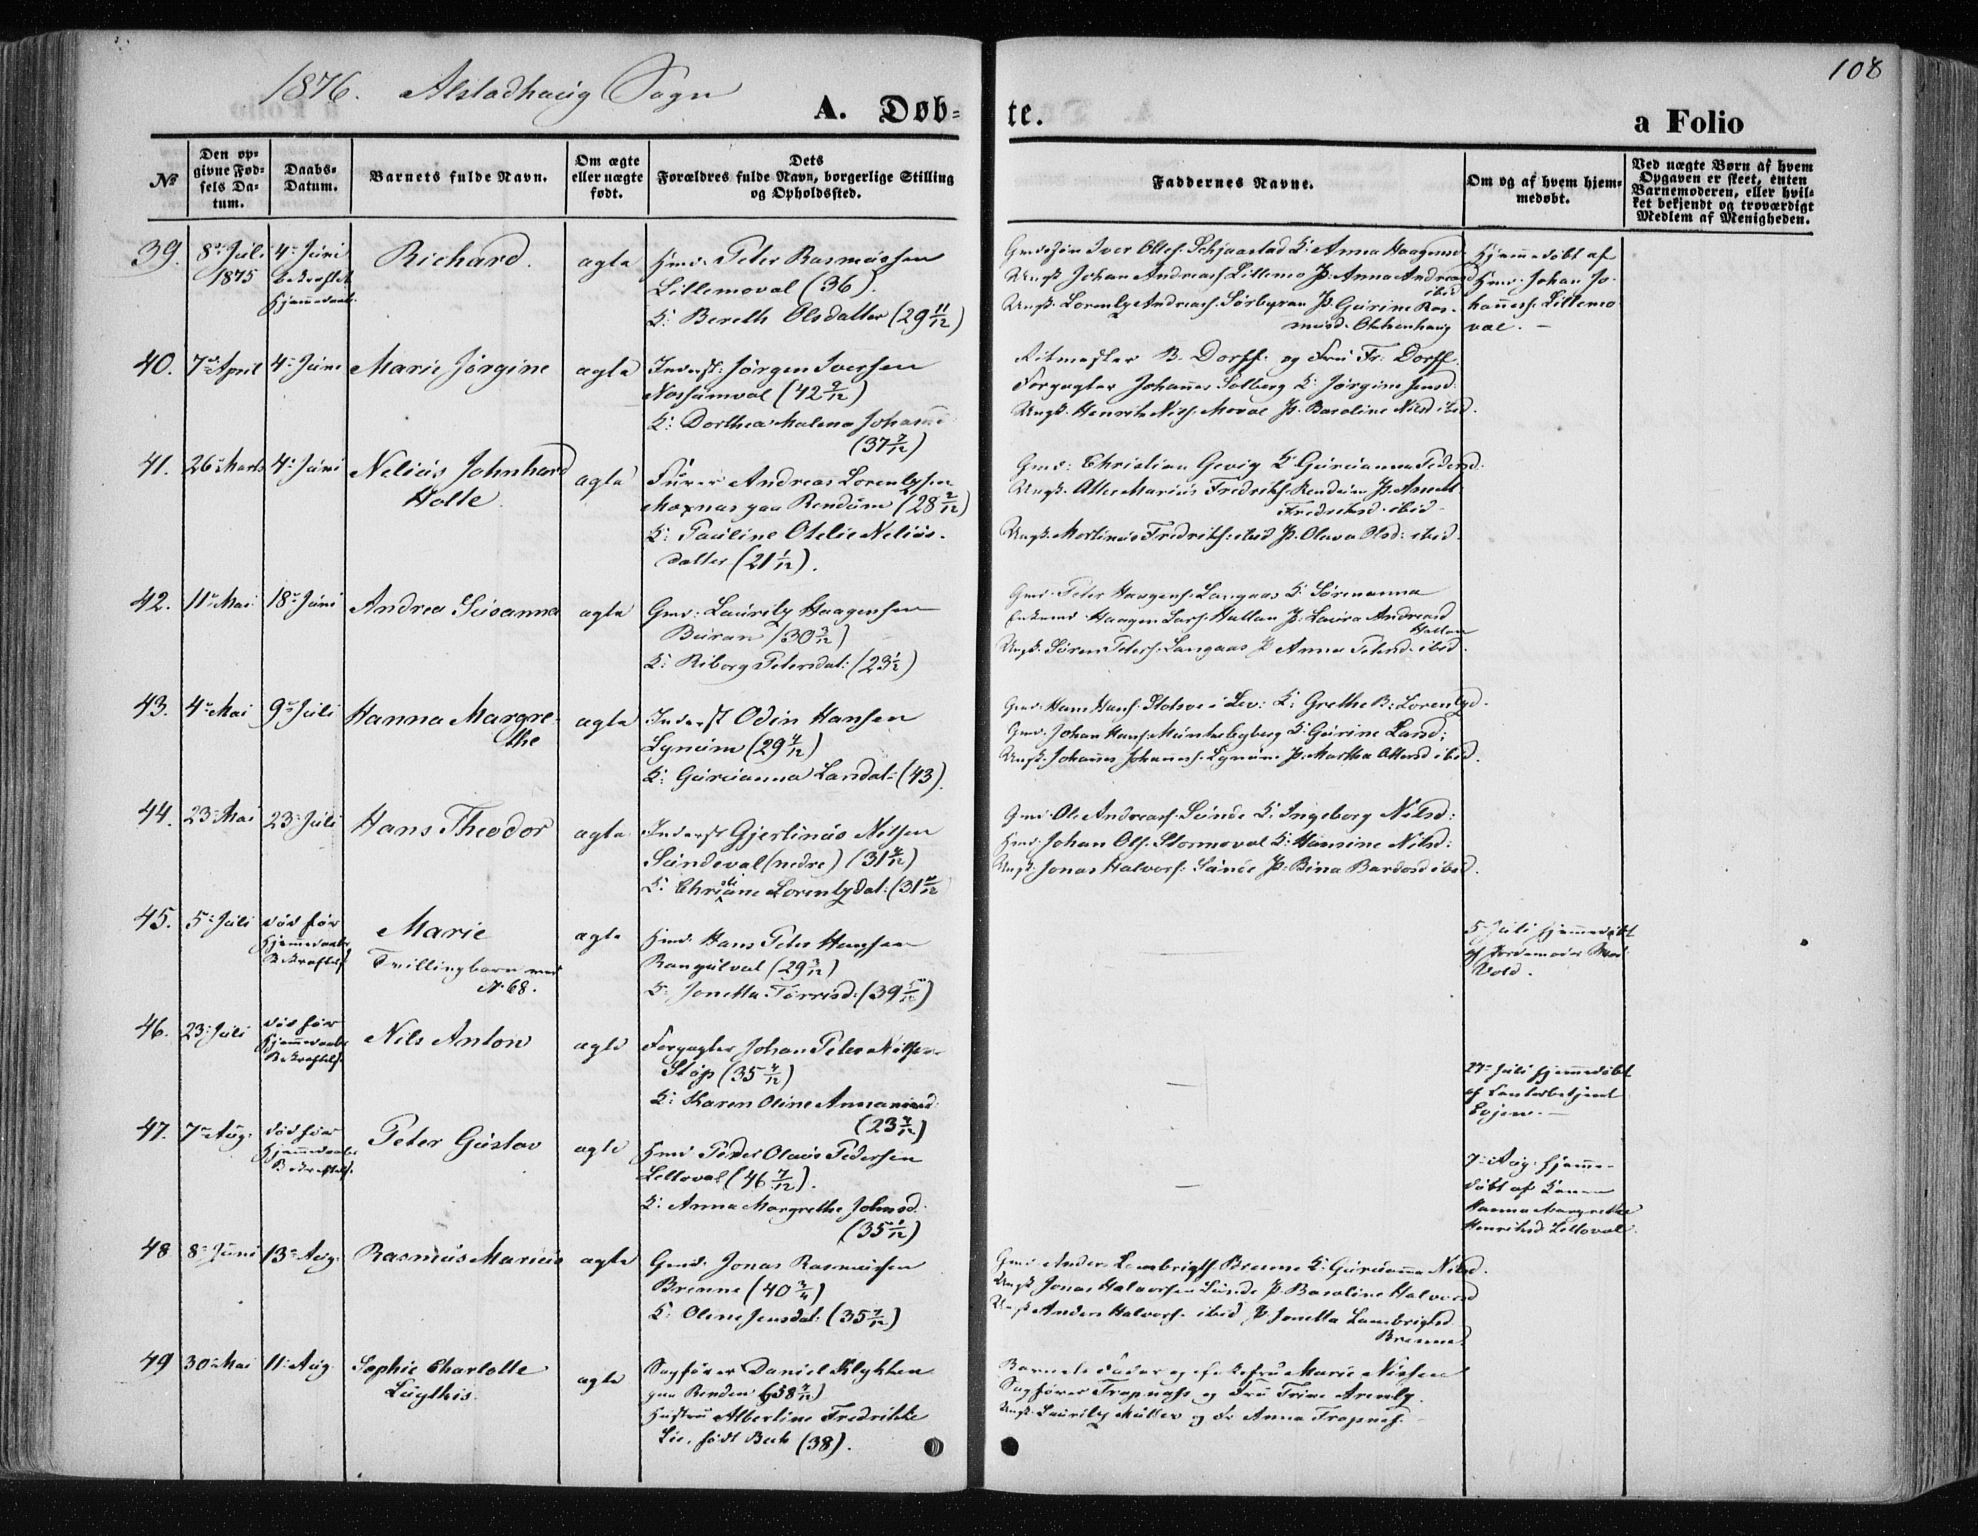 1876. Alstadhaug Sogn
108
A. Døb= te.
a Folio
No
Den op=
givne Fød=
sels Da=
tum.
Daabs=
Datum.
Barnets fulde Navn.
Om ægte
eller uægte
født.
Dets
Forældres fulde Navn, borgerlige Stilling
og Opholdssted.
Faddernes Navne.
Om og af hvem hjem=
medøbt.
Ved uægte Børn af hvem
Opgaven er skeet, enten
Barnemoderen, eller hvil=
ket bekjendt og troværdigt
Medlem af Menigheden.
39. 8de Juli 4de Juni Richard. ægte Hmd: Peter Rasmussen
1875 bekræftet Lillemoval (36).
Hjemmedaab K: Bereth Olsdatter (29 11/12)
Gmdssøn Iver Ollef: Schjaastad K: Anna Haagensd
Ungk Johan Andreas: Lillemo P: Anna Andreasd
ibid
Ungk. Lorentz Andreas: Sørbyran P: Gurine Ras-
musd.
Hjemmedøbt af
Hmd: Johan Jo-
hanness: Lillemo
val. -
40. 7de April 4de Juni Marie Jørgine ægte Inderst: Jørgen Iversen
Nossumval (42 9/12)
K: Dorthea Malena Johansd
(37 7/12)
Ritmester B. Dorff og Fru Fr: Dorff.
Forpagter Johannes Solberg K: Jørgine Jensd:
Ungk: Henrik Nils: Moval P: Baroline Nilsd ibid.
41. 26de Marts 4de Juni Nelius Johnhard ægte Furer Andreas Lorentzsen
Holte. Moxnes paa Rendum (28 2/12)
K: Pauline Otelie Nelius-
datter (21 1/12).
Gmd: Christian Gevig K: Gurianna Pedersd:
Ungk. Olle Marius Fredriks: Rendum P:
Fredriksd: ibid-
Ungk. Martinus Fredriks: ibid P: Olava Olsd: ibid.
42. 11te Mai 18de Juni Andrea Susanna ægte Gmd: Lauritz Haagensen
Buran (30 3/12)
K: Riborg Petersdat: (23 1/2)
Gmd: Peter Haagens: Langaas K: Sørinanna
Enkemd Haagen Lars: Hallan P: Laura Andreasd
Hallan
Ungk: Søren Peters: Langaas P: Anna Petersd: ibid.
43. 4de Mai 9de Juli Hanna Margre- ægte Inderst Odin Hansen
the Lynum (29 4/12)
K: Gurianna Larsdat: (43).
Gmd: Hans Hans: i Lev: K: Grethe B: Lorentzd.
Gmd. Johan Hans: Munkebyberg K: Gurine Larsd:
Ungk: Johannes Johannes: Lynum P: Martha Ottersd ibid.
44. 23de Mai 23de Juli Hans Theodor ægte Inderst Gjertinus Nilsen
Sundeval (nedre) (31 4/12)
K: Christiane Lorentzdat: (31 4/12)
Gmd: Ole Andreas: Sunde K: Ingeborg Nilsd:
Hmd: Johan Ols: Stormoval K: Hansine Nilsd:
Ungk: Jonas Halvors: Sunde P: Bina Bardosd ibid.
45. 5te Juli død før Marie ægte Hmd: Hans Peter Hansen
Hjemmedaabs Tvillingbarn med Rangulval (29 3/12)
Bekræftels: N: 68. K: Jonetta Torrisd: (39 5/12)
5te Juli hjemmedøbt
af Jordemoder
Vold.
46. 23de Juli død før Nils Anton ægte Forpagter Johan Peter Nilsen
Hjemmedaabs Støp (35 4/12)
Bekræftels: K: Karen Oline
(23 4/12)
27de Juli hjemmedøbt
af Lensbetjent
Evjen. -
47. 7de Aug: død før Peter Gustav ægte Hmd Peder Olaus Pedersen
Hjemmedaabs Lelloval (46 7/12).
Bekræftels: K: Anna Margrethe Johnsd:
(35 1/12)
7de Aug: hjemme-
døbt af Konen
Hanna Margrethe
Henriksd Lelloval.
48 8de Juni 13de Aug: Rasmus Marius ægte Gmd: Jonas Rasmussen
Brenne (40 3/4)
K: Oline Jensdat: (35 7/12)
Gmd: Anders Lambrigts: Brenne K: Gurianna Nilsd.
Ungk Jonas Halvorsen Sunde P: Baroline Halvorsd
Ungk Anders Halvors: ibid P: Jonetta Lambrigtsd
Brenne.
49 30te Mai 11te Aug Sophie Charlotte ægte Sagfører Daniel Klykken
paa Rinden (58 4/12)
Hustru Albertine Fredrikke
Lie, født Bech (38).
Barnets Fader og Frøken Marie Nielsen
Sagfører Trapnes og Fru Trine Arentz
Ungk: Lauritz Müller og Fr Anna Trapnes. -